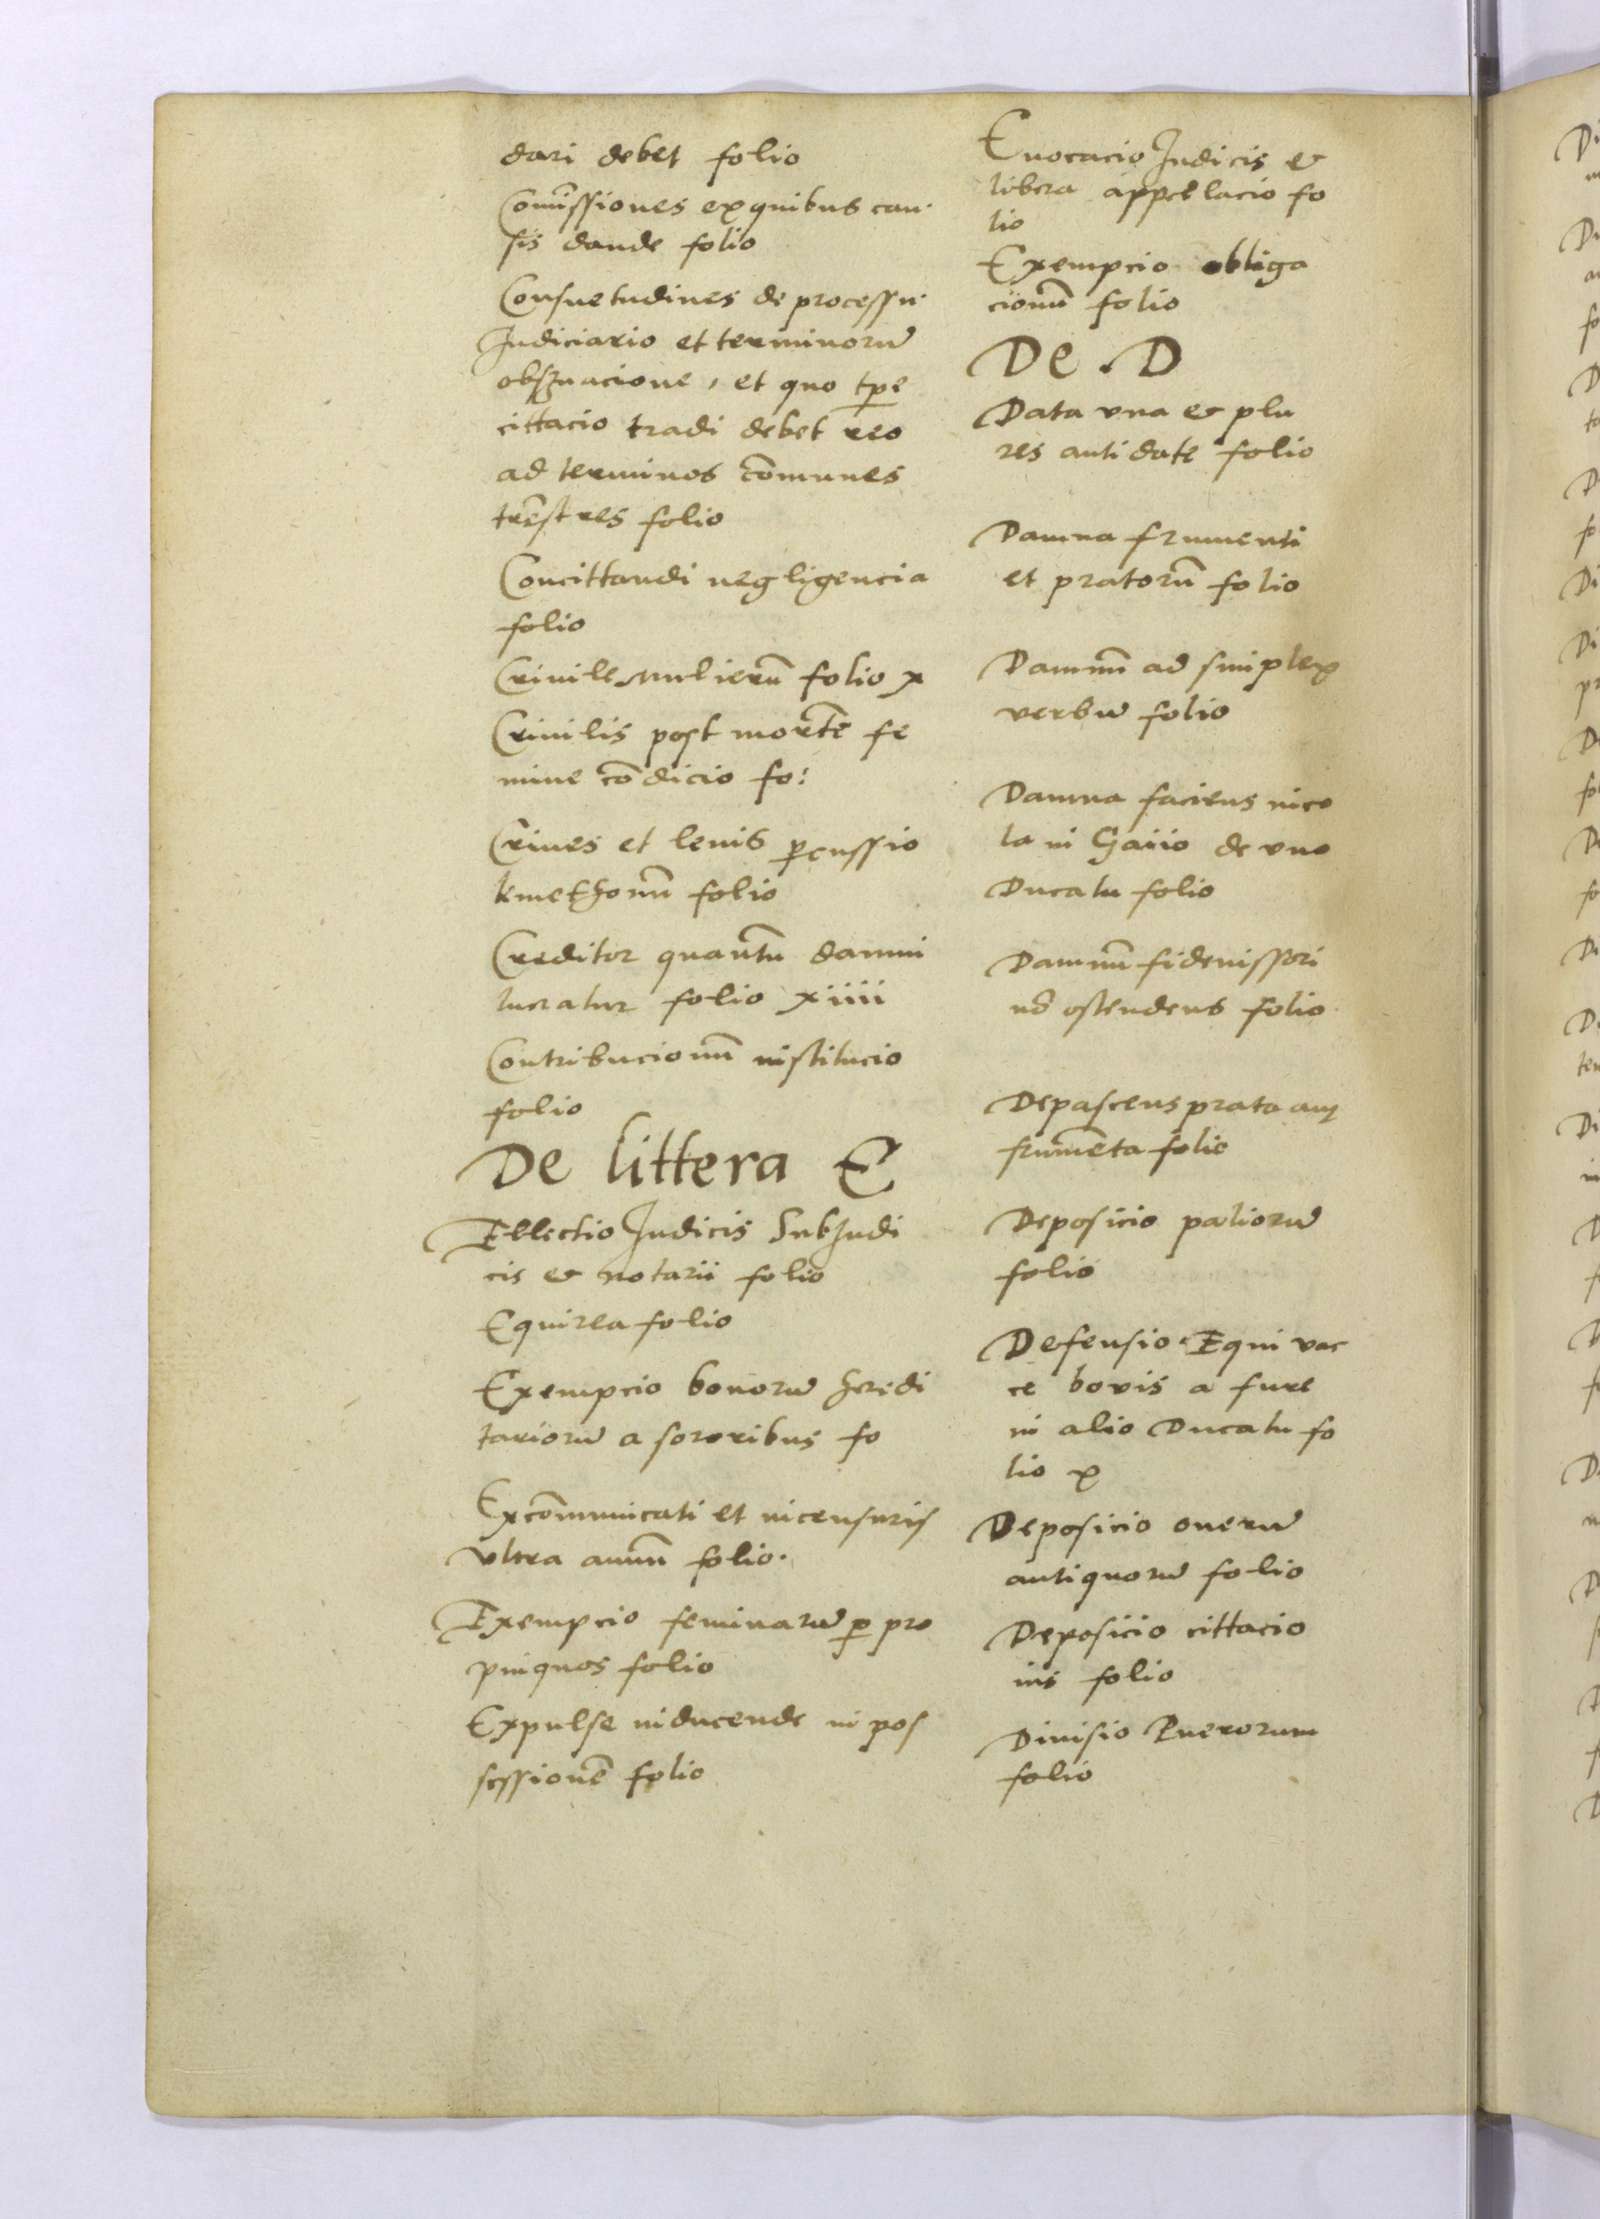 dari debet folio
Com̃issiones ex quibus cau
sis dande folio
Consuetudines de processu
Judiciario et terminorũ
obs̃uacione, et quo tp̃e
cittacio tradi debet reo
ad terminos com̃unes
tr̃estres folio
Concittandi negligencia
folio
Crinile Mulierũ folio x
Crinilis post mortẽ fe
mine cõdicio fo:
Crines et lenis ꝑcussio
kmethonũ folio
Creditor quantũ damni
lucratur folio xiiii
Contribucionũ institucio
folio
De littera E
Ellectio Judicis SubJudi
cis & notarii folio
Equirea folio
Exempcio bonorũ heredi
tariorũ a sororibus fo
Excõmunicati et in censuris
vltra annũ folio.
Exempcio feminarũ ꝑ pro
pinquos folio
Expulse inducende in pos
sessionẽ folio
Euocacio Judicis &
libera appellacio fo
lio
Exempcio obliga
cionũ folio
De . D
Data vna & plu
res antidate folio
Damna frumenti
et pratorũ folio
Damnũ ad simplex
verbũ folio
Damna faciens inco
la in Gaiio de vno
Ducatu folio
Damnũ fideiussori
nõ ostendens folio
Depascens prata aut
frumẽta folio
Deposicio paliorũ
folio
Defensio Equi vac
ce bovis a fure
in alio Ducatu fo
lio x
Deposicio onerũ
antiquorũ folio
Deposicio cittacio
nis folio
Diuisio Puerorum
folio